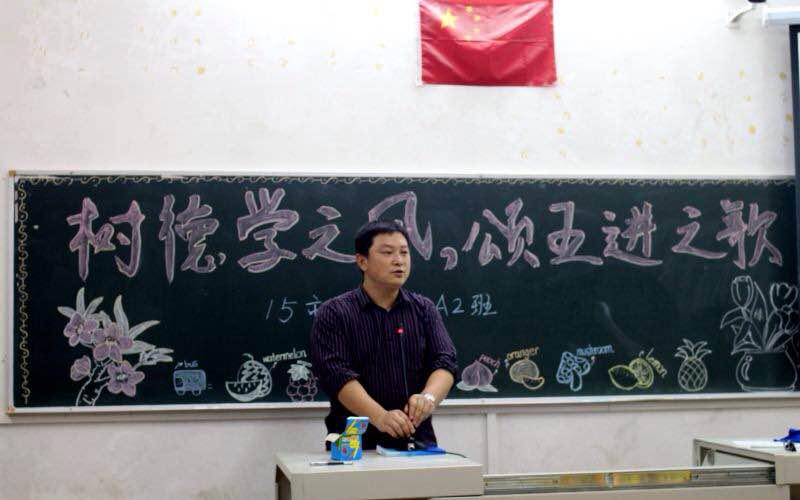 树德学之风，颂王进之歌
15 A2班
bus
watermelon
peach
oranger
mushroom
Lemon